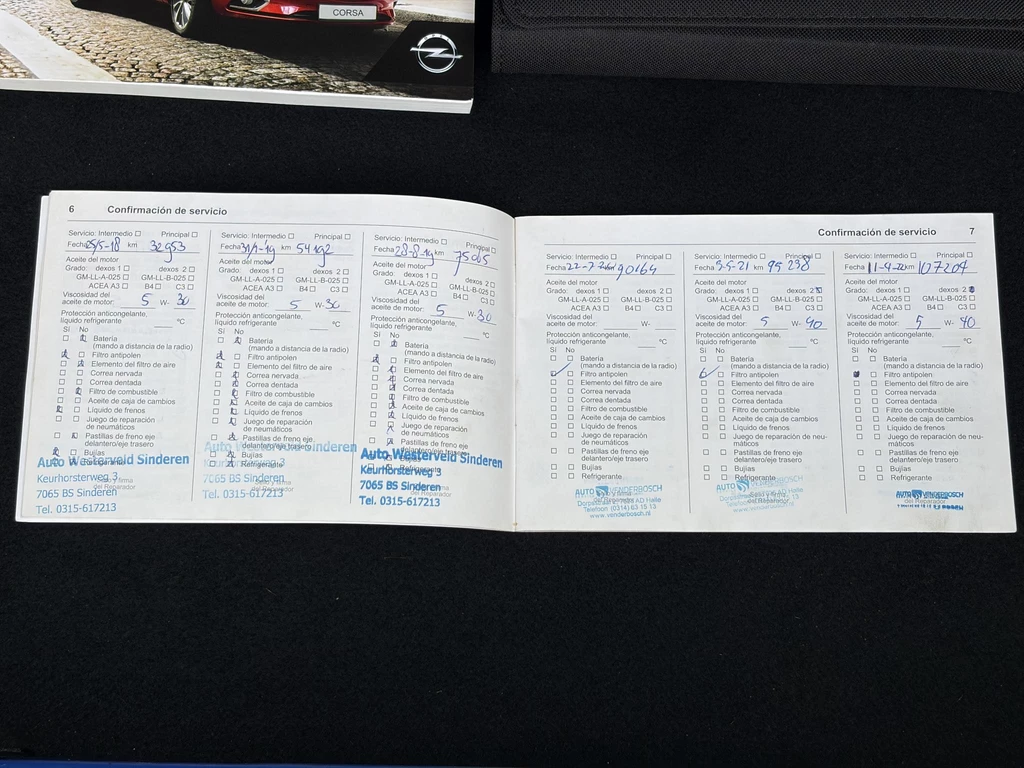 CORSA
OPEL
6 Confirmación de servicio
Servicio: Intermedio ☐ Principal ☐
Fecha 25/5-18 km 32953
Aceite del motor
Grado: dexos 1 ☐ dexos 2 ☐
GM-LL-A-025 ☐ GM-LL-B-025 ☐
ACEA A3 ☐ B4 ☐ C3 ☐
Viscosidad del
aceite de motor: 5 W- 30
Protección anticongelante,
líquido refrigerante °C
Sí No
Batería
(mando a distancia de la radio)
Filtro antipolen
Elemento del filtro de aire
Correa nervada
Correa dentada
Filtro de combustible
Aceite de caja de cambios
Líquido de frenos
Juego de reparación
de neumáticos
Pastillas de freno eje
delantero/eje trasero
Bujías
Refrigerante
Auto Westerveld Sinderen
Keurhorsterweg 3
7065 BS Sinderen
Tel. 0315-617213
Servicio: Intermedio ☐ Principal ☐
Fecha 31/1-19 km 54192
Aceite del motor
Grado: dexos 1 ☐ dexos 2 ☐
GM-LL-A-025 ☐ GM-LL-B-025 ☐
ACEA A3 ☐ B4 ☐ C3 ☐
Viscosidad del
aceite de motor: 5 W- 30
Protección anticongelante,
líquido refrigerante °C
Sí No
Batería
(mando a distancia de la radio)
Filtro antipolen
Elemento del filtro de aire
Correa nervada
Correa dentada
Filtro de combustible
Aceite de caja de cambios
Líquido de frenos
Juego de reparación
de neumáticos
Pastillas de freno eje
delantero/eje trasero
Bujías
Refrigerante
Auto Westerveld Sinderen
7065 BS Sinderen
Tel. 0315-617213
Servicio: Intermedio ☐ Principal ☐
Fecha 28-8-19 km 75005
Aceite del motor
Grado: dexos 1 ☐ dexos 2 ☐
GM-LL-A-025 ☐ GM-LL-B-025 ☐
ACEA A3 ☐ B4 ☐ C3 ☐
Viscosidad del
aceite de motor: 5 W- 30
Protección anticongelante,
líquido refrigerante °C
Sí No
Batería
(mando a distancia de la radio)
Filtro antipolen
Elemento del filtro de aire
Correa nervada
Correa dentada
Filtro de combustible
Aceite de caja de cambios
Líquido de frenos
Juego de reparación
de neumáticos
Pastillas de freno eje
delantero/eje trasero
Auto Westerveld Sinderen
Keurhorsterweg 3
7065 BS Sinderen
Tel. 0315-617213
Confirmación de servicio 7
Servicio: Intermedio ☐ Principal ☐
Fecha 22-7 km 90164
Aceite del motor
Grado: dexos 1 ☐ dexos 2 ☐
GM-LL-A-025 ☐ GM-LL-B-025 ☐
ACEA A3 ☐ B4 ☐ C3 ☐
Viscosidad del
aceite de motor: W-
Protección anticongelante,
líquido refrigerante °C
Sí No
Batería
(mando a distancia de la radio)
Filtro antipolen
Elemento del filtro de aire
Correa nervada
Correa dentada
Filtro de combustible
Aceite de caja de cambios
Líquido de frenos
Juego de reparación
de neumáticos
Pastillas de freno eje
delantero/eje trasero
Bujías
Refrigerante
AUTO VENDERBOSCH
Telefoon (0314) 63 15 13
www.venderbosch.nl
Servicio: Intermedio ☐ Principal ☐
Fecha 3-5-21 km 95238
Aceite del motor
Grado: dexos 1 ☐ dexos 2
GM-LL-A-025 ☐ GM-LL-B-025 ☐
ACEA A3 ☐ B4 ☐ C3 ☐
Viscosidad del
aceite de motor: 5 W- 40
Protección anticongelante,
líquido refrigerante °C
Sí No
Batería
(mando a distancia de la radio)
Filtro antipolen
Elemento del filtro de aire
Correa nervada
Correa dentada
Filtro de combustible
Aceite de caja de cambios
Líquido de frenos
Juego de reparación de neu-
máticos
Pastillas de freno eje
delantero/eje trasero
Bujías
Refrigerante
AUTO VENDERBOSCH
Servicio: Intermedio ☐ Principal ☐
Fecha 11-4-22 km 107204
Aceite del motor
Grado: dexos 1 ☐ dexos 2
GM-LL-A-025 ☐ GM-LL-B-025 ☐
ACEA A3 ☐ B4 ☐ C3 ☐
Viscosidad del
aceite de motor: 5 W- 40
Protección anticongelante,
líquido refrigerante °C
Sí No
Batería
(mando a distancia de la radio)
Filtro antipolen
Elemento del filtro de aire
Correa nervada
Correa dentada
Filtro de combustible
Aceite de caja de cambios
Líquido de frenos
Juego de reparación de neu-
máticos
Pastillas de freno eje
delantero/eje trasero
Bujías
Refrigerante
AUTO VENDERBOSCH